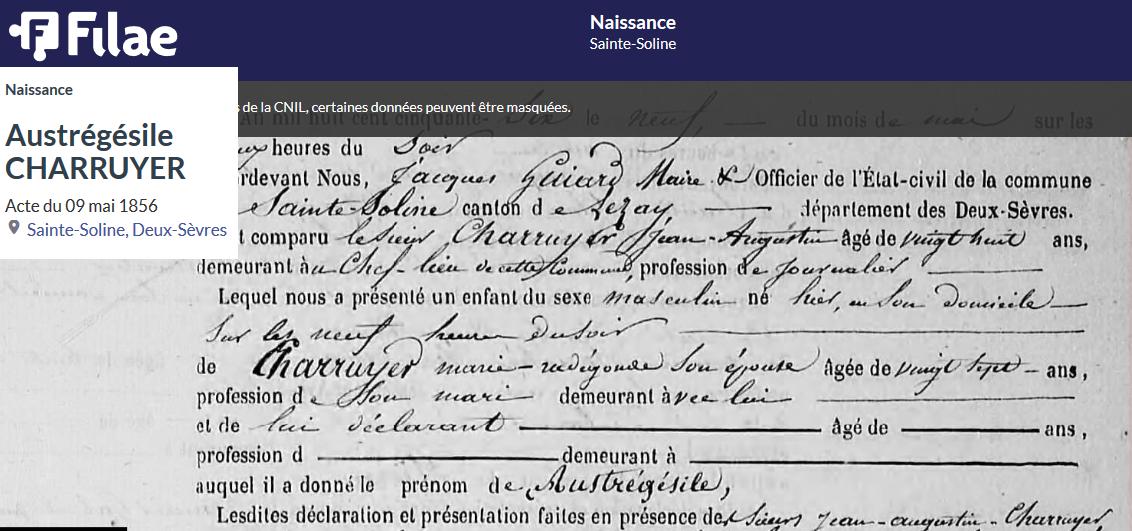 Filae
Naissance
Sainte-Soline
Naissance
Austrégésile
CHARRUYER
Acte du 09 mai 1856
Sainte-Soline, Deux-Sèvres
s de la CNIL, certaines données peuvent être masquées.
An mil huit cent cinquante-six le neuf, du mois de mai sur les
heures du Soir
rdevant Nous, Jacques Guiard Maire & Officier de l'État-civil de la commune
Sainte Soline canton d e Lezay, département des Deux-Sèvres.
t comparu le sieur Charruyer Jean-Augustin âgé de vingt huit ans,
demeurant à u Chef-lieu de cette Commune, profession d e journalier
Lequel nous a présenté un enfant du sexe masculin né hier, en son domicile
Sur les neuf heures du soir
de Charruyer marie-radégonde Son épouse âgée de vingt sept ans,
profession d e Son mari demeurant à vec lui
et de lui déclarant âgé de ans,
profession d demeurant à
auquel il a donné le prénom de Austrégésile,
Lesdites déclaration et présentation faites en présence des Sieurs jean-augustin Charruyer